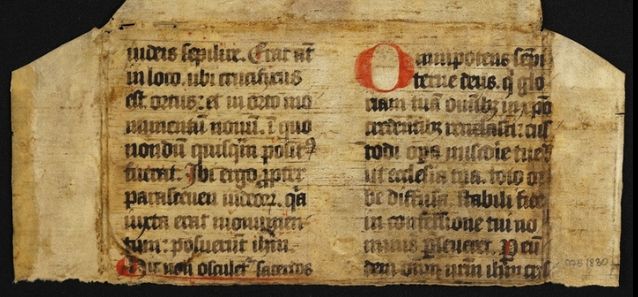 iudeis sepilire. Erat aūt
in loco. ubi crucifixus
est. ortus: et in orto mo
numentū nouū. ī quo
nondū quisq̄m posit⁹
fuerat. Ibi ergo ꝓpter
parasceuen iudeoꝝ. q̄a
iuxta erat monumen-
tum: posuerūt ihm̄
non osculet᷑ sacerdos
Omnipotens sēpi
terne deus. q̇ glo
riam tuā ōnibꝫ in xp̄o
reuelasti: cus
todi oꝑa mīscdie tue
ut ecclesia tua. toto or
be diffusa. stabili fide
in confessione tui no
minis ꝑseueret. P eūⁿ
dem dnm̄ nrm̄ ihm̄ cris
005/830